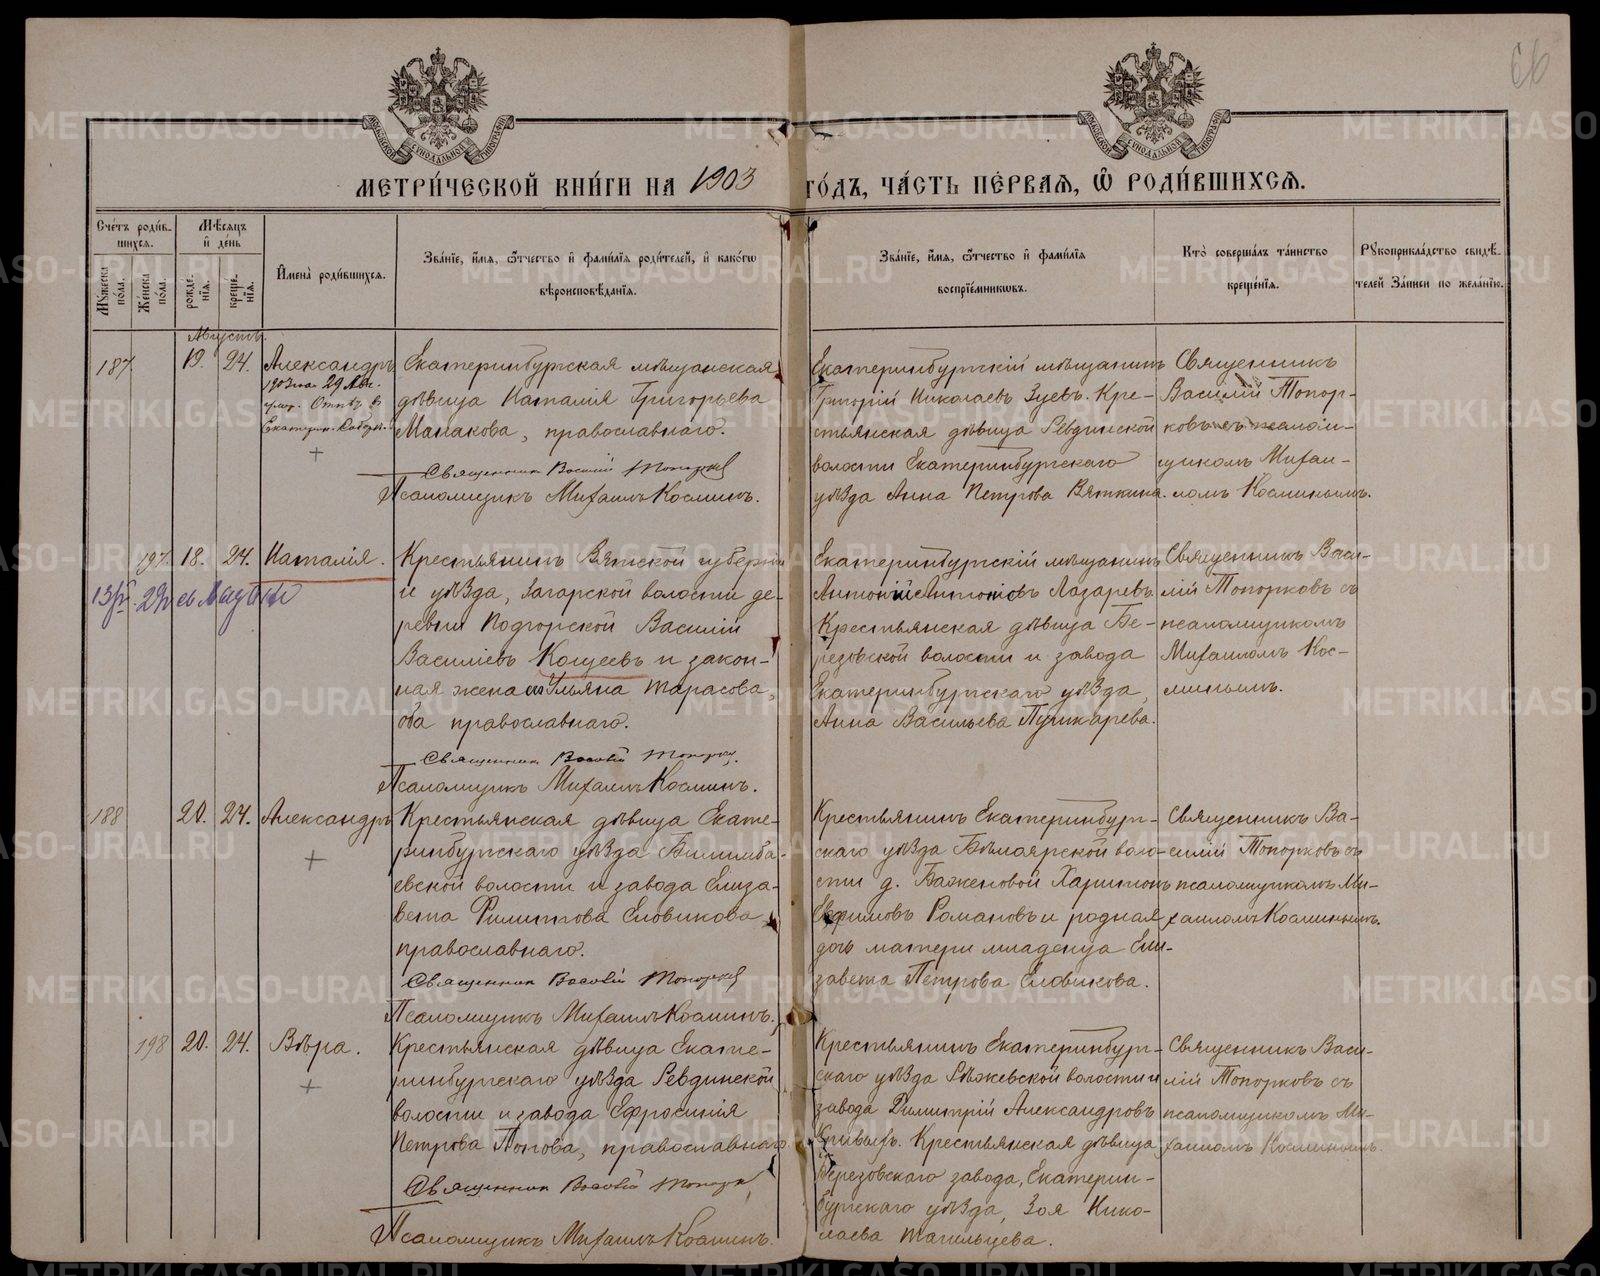 МЕТРИ́ЧЕСКОЙ КНИ́ГИ НА 1903 ГО́ДЪ, ЧА́СТЬ ПЕ́РВАЯ, Ѿ РОДИ́ВШИХСЯ.
Сче́тъ роди́в-
шихся.
Мꙋ́жеска по́ла.
Же́нска по́ла.
Мѣ́сяцъ и҆ де́нь
рожде́нїя.
креще́нїя.
И҆мена̀ роди́вшихся.
Зва́нїе, и҆́мя, ѻ҆́тчество и҆ фами́лїя роди́телей, и҆ како́гѡ
вѣроисповѣ́данїя.
Зва́нїе, и҆́мя, ѻ҆́тчество и҆ фами́лїя
воспрїе́мникѡвъ.
Кто̀ соверша́лъ та́инство
креще́нїя.
Рꙋкоприкла́дство свидѣ́-
телей За́писи по жела́нїю.
Августъ.
187
19. 24.
Александръ
1903 года 29 Авг.
умер. Отпѣт в
Екатерин. Собор.
Екатеринбургская мѣщанская
дѣвица Наталія Григорьева
Манакова, православнаго.
Священник Василий Топорков
Псаломщикъ Михаилъ Косминъ.
Екатеринбургскій мѣщанинъ
Григорій Николаевъ Зуевъ. Кре-
стьянская дѣвица Ревдинской
волости Екатеринбургскаго
уѣзда Анна Петрова Вяткина.
Священникъ
Василій Топор-
ковъ съ псалом-
щикомъ Михаи-
ломъ Косминымъ.
197. 18. 24.
Наталія.
Крестьянинъ Вятской губерніи
и уѣзда, Загарской волости де-
ревни Подгорской Василій
Василіевъ Кощеевъ и закон-
ная жена его Ульяна Тарасова,
оба православнаго.
Священник Василий Топорков
Псаломщикъ Михаилъ Косминъ.
Екатеринбургскій мѣщанинъ
Антоній Антоновъ Лазаревъ
Крестьянская дѣвица Бе-
резовской волости и завода
Екатеринбургскаго уѣзда,
Анна Васильева Пушкарева.
Священникъ Васи-
лій Топорковъ съ
псаломщикомъ
Михаиломъ Кос-
минымъ.
188
20. 24.
Александръ
Крестьянская дѣвица Екате-
ринбургскаго уѣзда Билимба-
евской волости и завода Елиза-
вета Филиппова Еловикова
православнаго.
Священник Василий Топорков
Псаломщикъ Михаилъ Косминъ.
Крестьянинъ Екатеринбург-
скаго уѣзда Бѣлоярской воло-
сти д. Баженовой Харитонъ
Евфимовъ Романовъ и родная
дочь матери младенца Ели-
завета Петрова Еловикова.
Священникъ Ва-
силій Топорковъ съ
псаломщикомъ Ми-
хаиломъ Косминымъ.
198 20. 24.
Вѣра.
Крестьянская дѣвица Екате-
ринбургскаго уѣзда Ревдинской
волости и завода Ефросинія
Петрова Попова, православнаго
Священник Василий Топорков
Псаломщикъ Михаилъ Косминъ.
Крестьянинъ Екатеринбург-
скаго уѣзда Рѣжевской волости и
завода Димитрій Александровъ
Кривыхъ. Крестьянская дѣвица
Березовскаго завода, Екатерин-
бургскаго уѣзда, Зоя Нико-
лаева Тагильцева.
Священникъ Васи-
лій Топорковъ съ
псаломщикомъ Ми-
хаиломъ Косминымъ.
METRIKI.GASO-URAL.RU